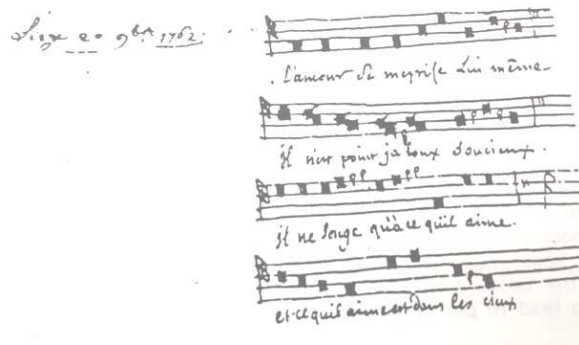 Liege 20 9bre 1762.
L'amour se meprise lui même
il n'est point jaloux soucieux.
il ne songe qu'a ce qu'il aime.
et ce qu'il aime est dans les cieux